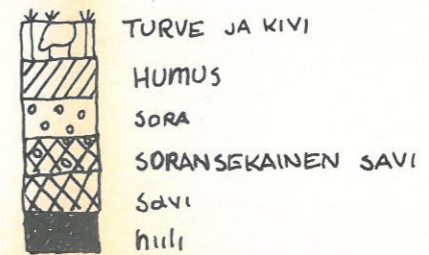 TURVE JA KIVI
HUMUS
SORA
SORANSEKAINEN SAVI
Savi
hiili